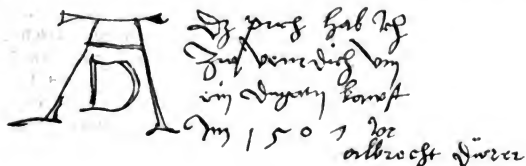 AD
Dz puch hab ich
zw venedich vm
ein Dugatn kawft
Im 1507 Jor
albrecht Dürer